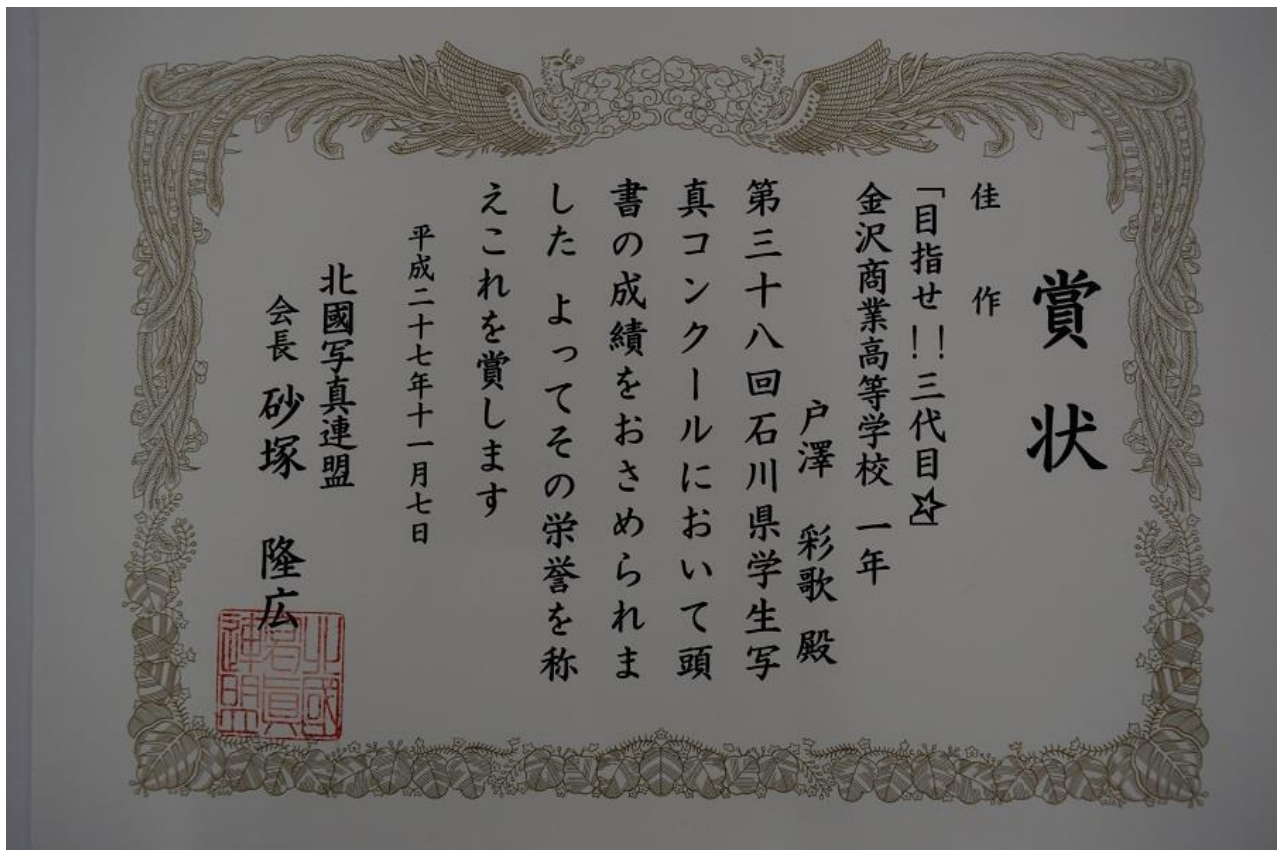 賞状
佳作
「目指せ!!三代目☆」
金沢商業高等学校 一年
戸澤 彩歌 殿
第三十八回石川県学生写
真コンクールにおいて頭
書の成績をおさめられま
した よってその栄誉を称
えこれを賞します
平成二十七年十一月七日
北國写真連盟
会長 砂塚 隆広
北國
寫眞
連盟